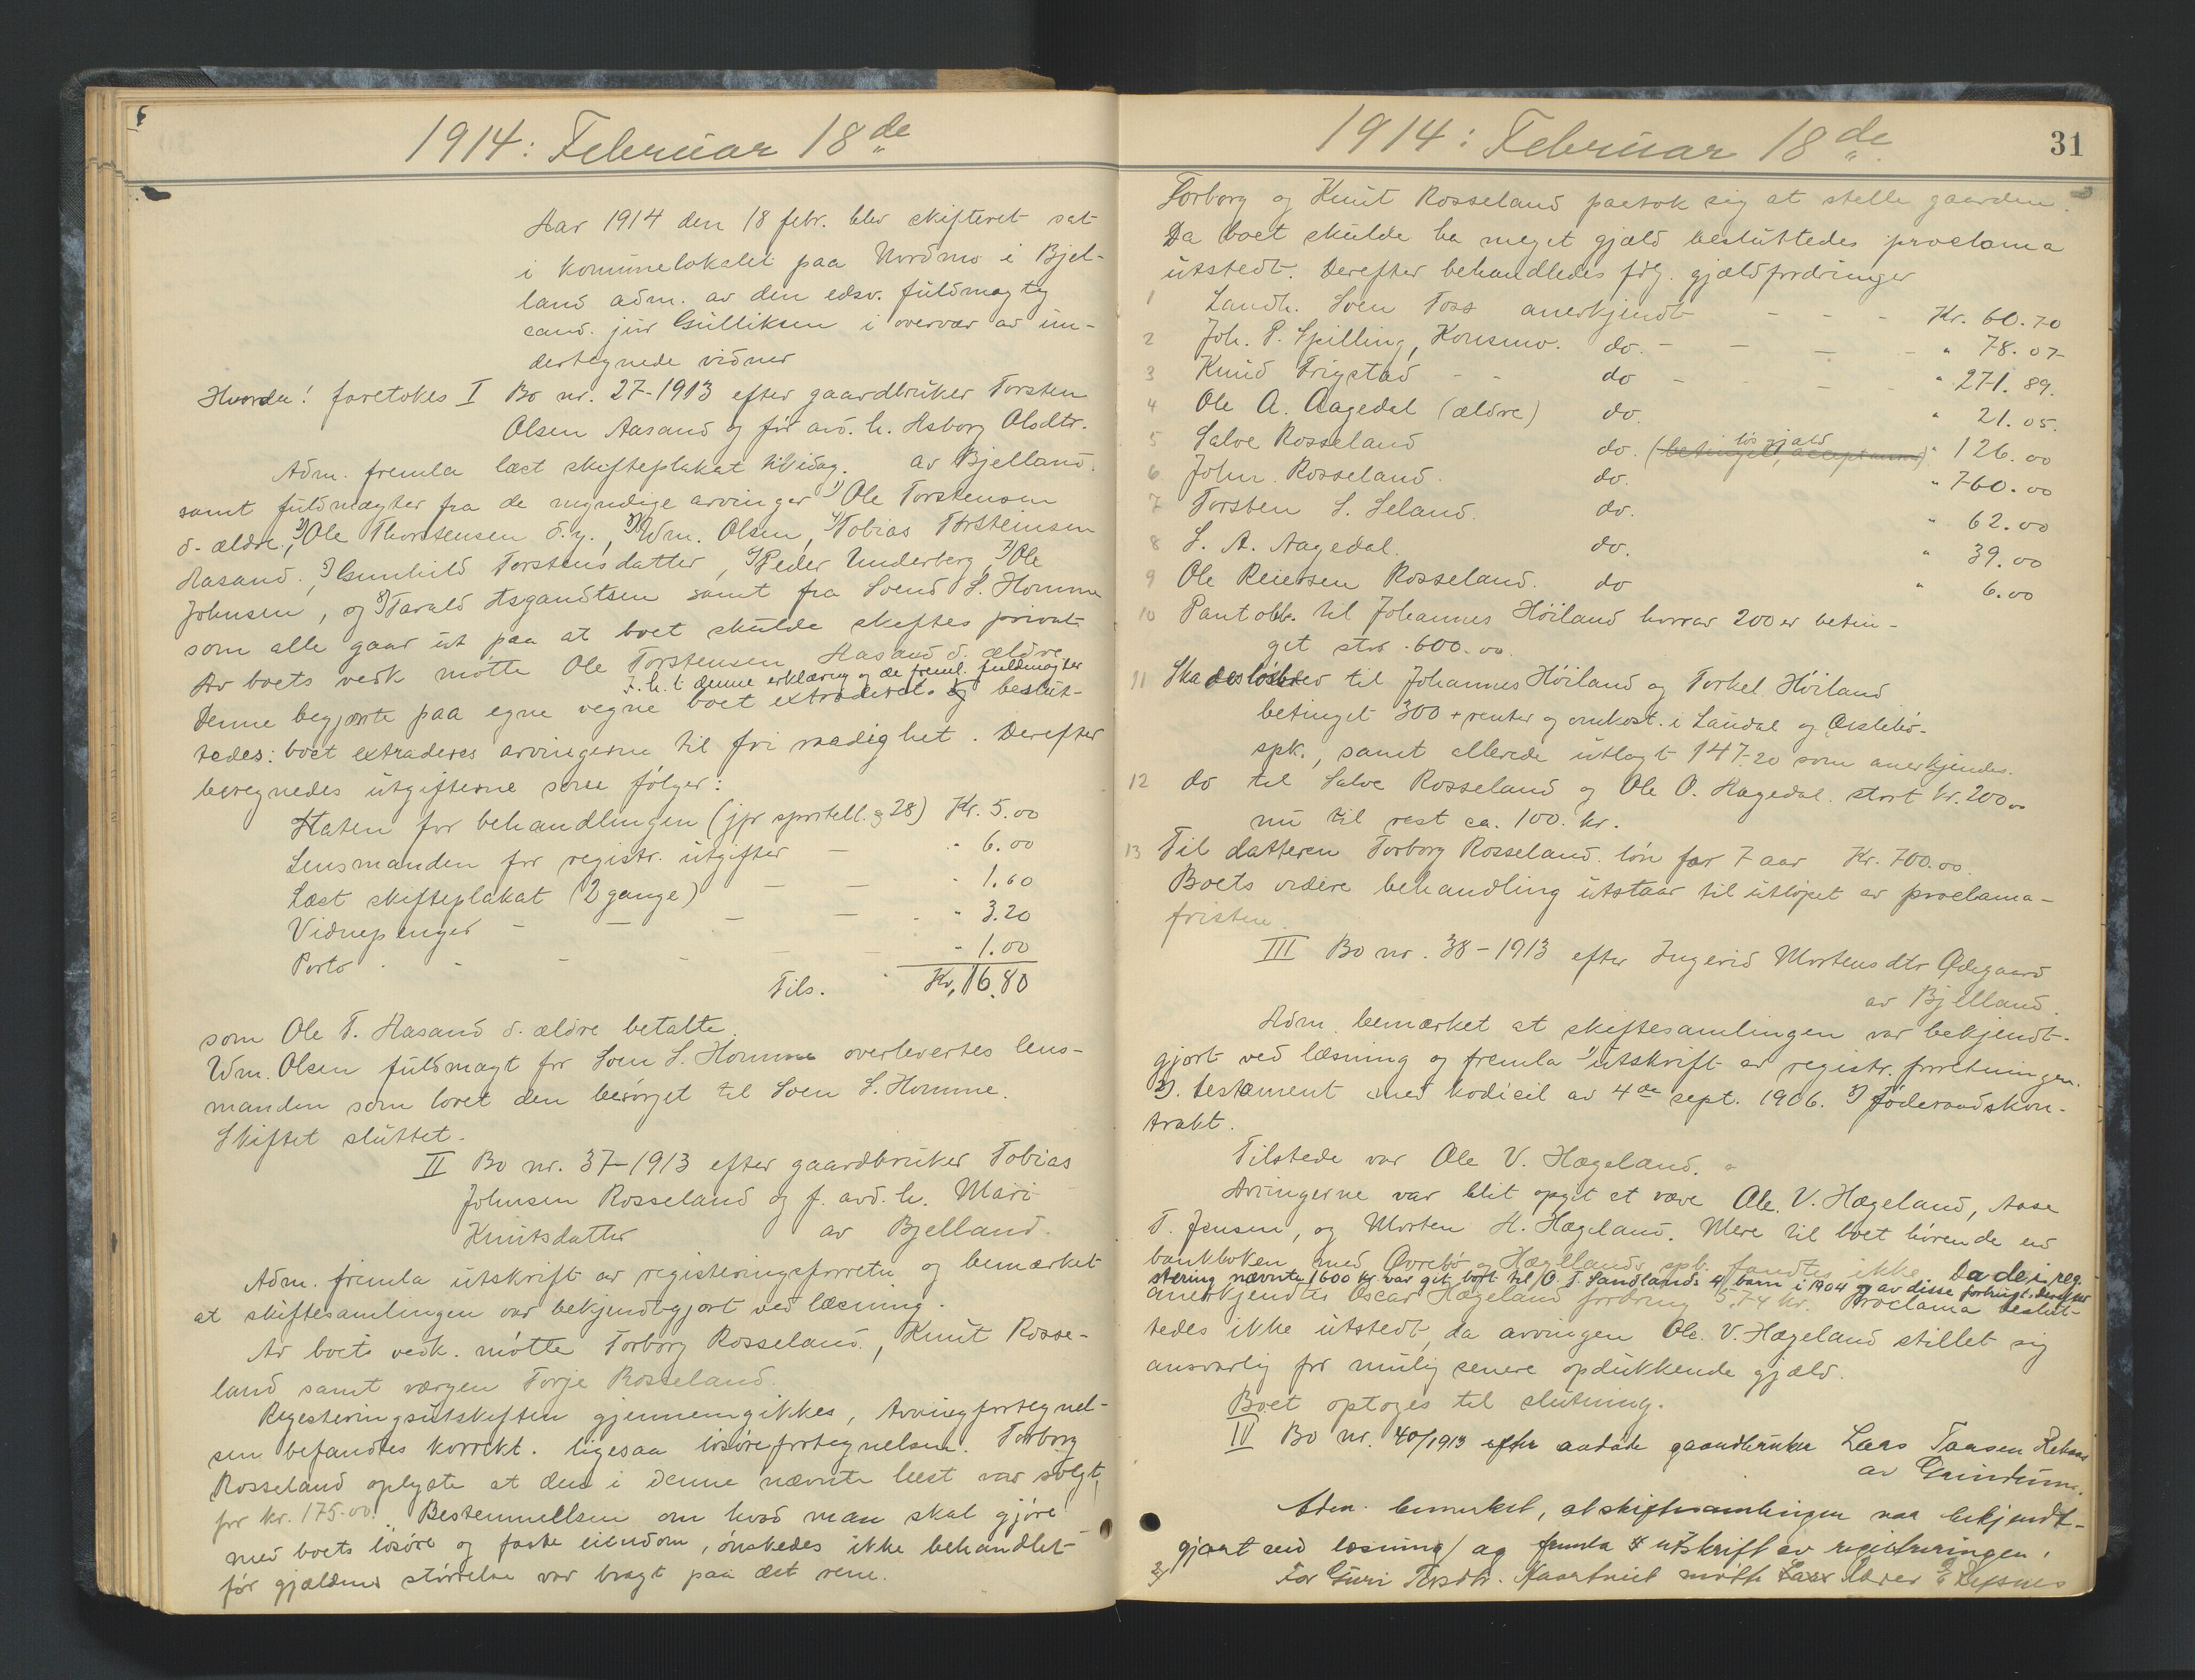 1914: Februar 18de
Aar 1914 den 18 febr. blev skifteret sat
i kommunelokalet paa Nordmo i Bjel-
land adm. av den edsv. fuldmægtig
cand. jur Gulliksen i overvær av un-
dertegnede vidner
Hvorda! foretokes I Bo nr. 27-1913 efter gaardbruker Torsten
Olsen Aasand og før avd. h. Asborg Olsdtr.
av Bjelland.
Adm. fremla læst skifteplakat til idag.
samt fuldmagter fra de myndige arvinger 1) Ole Torstensen
d. ældre, 2) Ole Thorstensen d.y., 3) Wm. Olsen, 4) Tobias Torsteinsen
Aasand, 5) Gunhild Torstensdatter, 6) Peder Underberg, 7) Ole
Johnsen, og 8) Tarald Asgautsen samt fra Svend S. Homme
som alle gaar ut paa at boet skulde skiftes privat
Av boets vedk møtte Ole Torstensen Aasand d. ældre
I h. t denne erklæring og de freml. fuldmagter
Denne begjærte paa egne vegne boet extraderet. og beslut-
tedes: boet extraderes arvingerne til fri raadighet. Derefter
beregnedes utgifterne som følger:
Staten for behandlingen (jfr sportell. § 28) Kr. 5.00
Lensmanden for registr. utgifter — " 6.00
Læst skifteplakat (2 gange) — — " 1.60
Vidnepenger - — — — " 3.20
Porto - - - - — " 1.00
Tils. Kr. 16.80
som Ole T. Aasand d. ældre betalte.
Wm. Olsen fuldmagt for Sven S. Homme overlevertes lens-
manden som lovet den besørget til Sven S. Homme.
Skiftet sluttet.
II Bo nr. 37-1913 efter gaardbruker Tobias
Johnsen Rosseland og f. avd. h. Mari
Knutsdatter av Bjelland.
Adm. fremla utskrift av registeringsforretn. og bemærket
at skiftesamlingen var bekjendtgjort ved læsning.
Av boets vedk. møtte Torborg Rosseland, Knut Rosse-
land samt værgen Torje Rosseland.
Registeringsutskriften gjennemgikkes, Arvingfortegnel-
sen befandtes korrekt. ligesaa løsørefortegnelsen. Torborg
Rosseland oplyste at den i denne nævnte hest var solgt
for kr. 175.00. Bestemmellsen om hvad man skal gjøre
med boets løsøre og faste eiendom, ønskedes ikke behandlet
før gjældens størrelse var bragt paa det rene.
1914: Februar 18de
31
Torborg og Knut Rosseland paatok sig at stelle gaarden.
Da boet skulde ha meget gjæld besluttedes proclama
utstedt. Derefter behandledes følg. gjældfordringer
1 Landh. Sven Foss anerkjendt - - - Kr. 60.70
2 Joh. P. Spilling, Konsmo. do. - — — - " 78.07
3 Knud Trygstad - - do - - — - " 271.89.
4 Ole A. Aagedal (ældre) do. " 21.05.
5 Salve Rosseland do. (betinget, acceptanns) løs gjæld " 126.00
6 John Rosseland. do. " 760.00
7 Torsten S. Seland. do. " 62.00
8 S. A. Aagedal. do. " 39.00
9 Ole Reiersen Rosseland. do " 6.00
10 Pantobl. til Johannes Høiland hvorav 200 er betin-
get stor 600.00.
11 Skadesløsbrev til Johannes Høiland og Torkel Høiland
betinget 300 + renter og omkost. i Laudal og Øislebø-
spk., samt allerede utlagt 147.20 som anerkjendes.
12 do til Salve Rosseland og Ole O. Aagedal. stort kr. 200.00
nu til rest ca. 100 kr.
13 Til datteren Torborg Rosseland. løn for 7 aar Kr. 700.00.
Boets videre behandling utstaar til utløpet av proclama-
fristen.
III Bo nr. 38-1913 efter Ingerid Mortensdtr Ødegaard
av Bjelland.
Adm. bemærket at skiftesamlingen var bekjendt-
gjort ved læsning og fremla 1) utskrift av registr. forretningen.
2). testament med kodicil av 4de sept. 1906. 3) føderaadskon-
trakt.
Tilstede var Ole V. Hægeland.
Arvingerne var blit opgit at være Ole V. Hægeland, Aase
T. Jensen, og Morten H. Hægeland. Mere til boet hørende end
bankboken med Øvrebø og Hægelands spb. fandtes ikke. Da de i reg.
stering nævnte 1600 kr. var git bort til O. T. Sandlands 4 barn i 1904 og av disse forbrugt. Derefter
anerkjendtes Oscar Hægeland fordring 5.74 kr. Proclama beslut-
tedes ikke utstedt, da arvingen Ole V. Hægeland stillet sig
ansvarlig for mulig senere opdukkende gjæld.
Boet optoges til slutning.
IV Bo nr. 40/1913 efter avdøde gaardbruker Lars Taasen
av Grindum.
Adm. bemerket, at skiftesamlingen var bekjendt-
gjort ved læsning og fremla utskrift av registreringen.
2) For Guri møtte Lærer